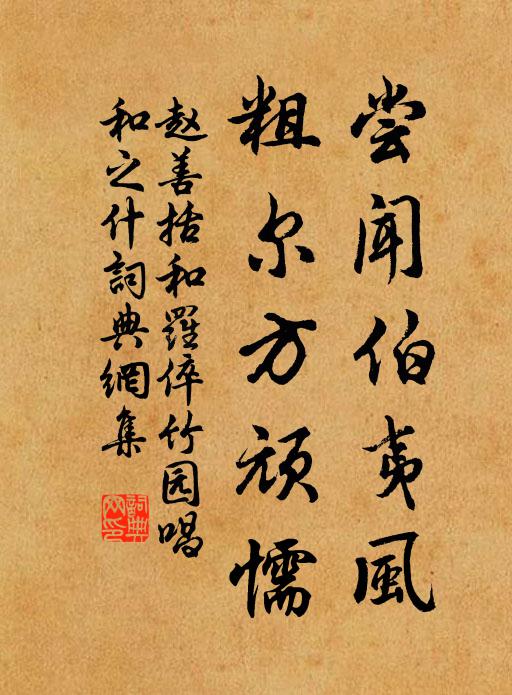 尝闻伯夷風
粗尔方顽懦
赵善括和羅倅竹园唱
和之什詞典網集
詞典網印